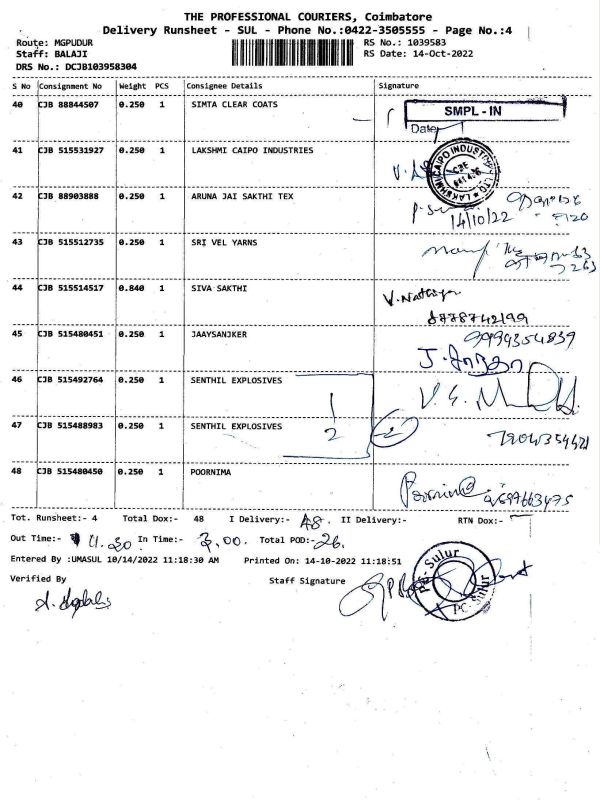 THE PROFESSIONAL COURIERS, Coimbatore
Delivery Runsheet - SUL - Phone No.:0422-3505555 - Page No.:4
Route: MGPUDUR RS No.: 1039583
Staff: BALAJI RS Date: 14-Oct-2022
DRS No.: DCJB103958304
S No Consignment No Weight PCS Consignee Details Signature
40 CJB 88844507 0.250 1 SIMTA CLEAR COATS
SMPL - IN
Date
41 CJB 515531927 0.250 1 LAKSHMI CAIPO INDUSTRIES
LAKSHMI CAIPO INDUSTRI LTD
CBE
42 CJB 88903888 0.250 1 ARUNA JAI SAKTHI TEX
14/10/22
43 CJB 515512735 0.250 1 SRI VEL YARNS
44 CJB 515514517 0.840 1 SIVA SAKTHI
8778742199
45 CJB 515480451 0.250 1 JAAYSANJKER
9994354839
46 CJB 515492764 0.250 1 SENTHIL EXPLOSIVES
1
47 CJB 515488983 0.250 1 SENTHIL EXPLOSIVES
2 2
48 CJB 515480450 0.250 1 POORNIMA
Tot. Runsheet:- 4 Total Dox:- 48 I Delivery:- 48. II Delivery:- RTN Dox:-
Out Time:- 11.30 In Time:- 3.00. Total POD:- 26.
Entered By :UMASUL 10/14/2022 11:18:30 AM Printed On: 14-10-2022 11:18:51
Verified By Staff Signature
PC-Sulur
PC-Sulur